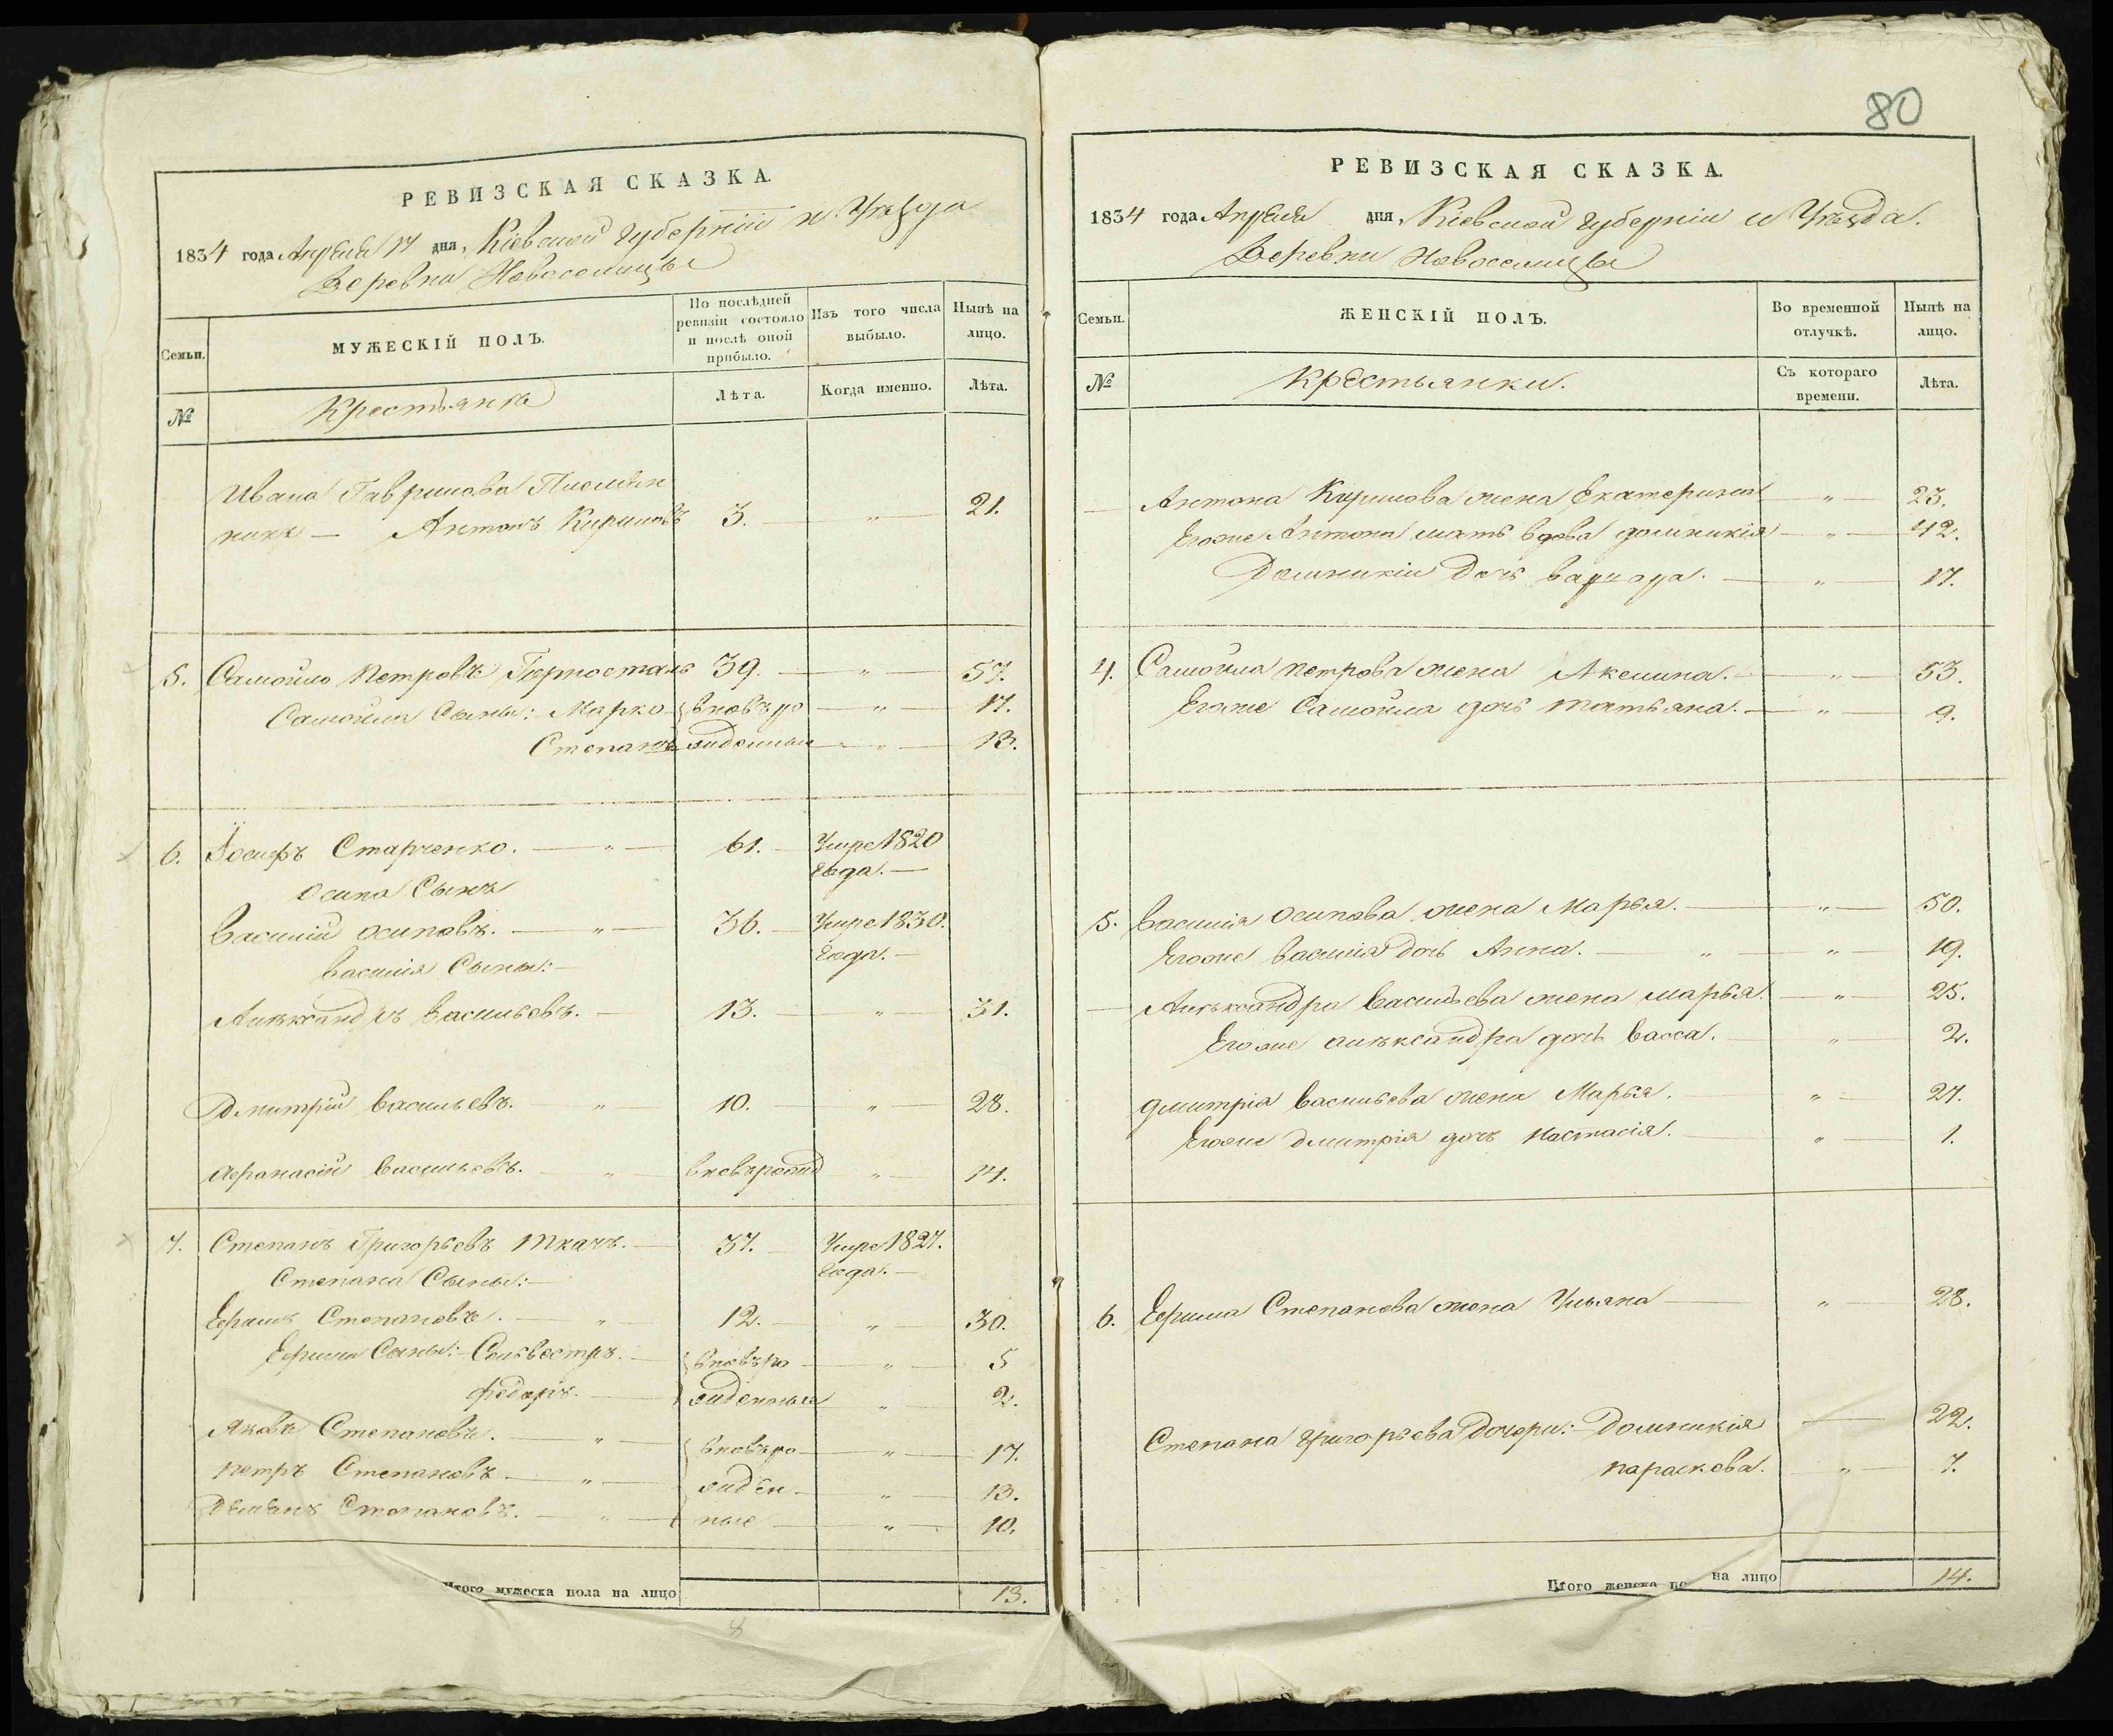 РЕВИЗСКАЯ СКАЗКА.
1834 года Апреля 17 дня, Кіевской губерніи и Уѣзда
Деревни Новоселицы
Семьи.
МУЖЕСКІЙ ПОЛЪ.
По послѣдней ревизіи состояло и послѣ оной прибыло.
Изъ того числа выбыло.
Нынѣ на лицо.
№
Крестьяне
Лѣта.
Когда именно.
Лѣта.
Ивана Гаврилова
никъ — Антонъ Кириловъ 3. — „ — 21.
5. Самойло Петровъ Горносталь 39. — „ — 57.
Самойла Сыны: Марко вновьро — „ — 17.
Степанъ жденныя — „ — 13.
6. Іосифъ Старченко. — „ — 61. — Умре 1820
года. —
Осипа Сынъ
Василій Осиповъ. — „ — 36. — Умре 1830.
года. —
Василія Сыны: —
Алѣксандръ Васильевъ. — 13. — „ — 31.
Дмитрій Васильевъ. „ — 10. — „ — 28.
Афанасій Васильевъ. — „ — вновьрожд „ — 14.
7. Степанъ Григорьевъ Ткачъ. — 37. — Умре 1827.
года. —
Степана Сыны: —
Ефимъ Степановъ. — „ — 12. — „ — 30.
Ефима Сыны: Селивестръ. — вновьро — „ — 5
Федоръ. — жденныя „ — 2.
Яковъ Степановъ. — „ — вновьро — „ — 17.
Петръ Степановъ — „ — жден — „ — 13.
Демьянъ Степановъ. — „ — ные — „ — 10.
Итого мужеска пола на лицо 13.
8
80
РЕВИЗСКАЯ СКАЗКА.
1834 года Апреля дня, Кіевской губерніи и Уѣзда.
Деревни Новоселицы
Семьи.
ЖЕНСКІЙ ПОЛЪ.
Во временной отлучкѣ.
Нынѣ на лицо.
№
Крестьянки.
Съ котораго времени.
Лѣта.
— Антона Кирилова жена Екатерина — „ — 23.
Егоже Антона мать вдова Домникія — „ — 42.
Домникіи дочь Варвара. — „ — 17.
4. Самойла Петрова жена Акелина. — „ — 53.
Егоже Самойла дочь Татьяна. — „ — 9.
5. Василія Осипова жена Марья. — „ — 50.
Егоже Василія дочь Анна. — „ — „ — 19.
— Алѣксандра Васильева жена Марья. — „ — 25.
Егоже Алѣксандра дочь Васса. — „ — 2.
Дмитрія Васильева жена Марья. — „ — 27.
Егоже Дмитрія дочь Настасія. — „ — 1.
6. Ефима Степанова жена Ульяна — „ — 28.
Степана Григорьева Дочери: Домникія — 22.
Параскева. — „ — 7.
Итого женска по на лицо 14.